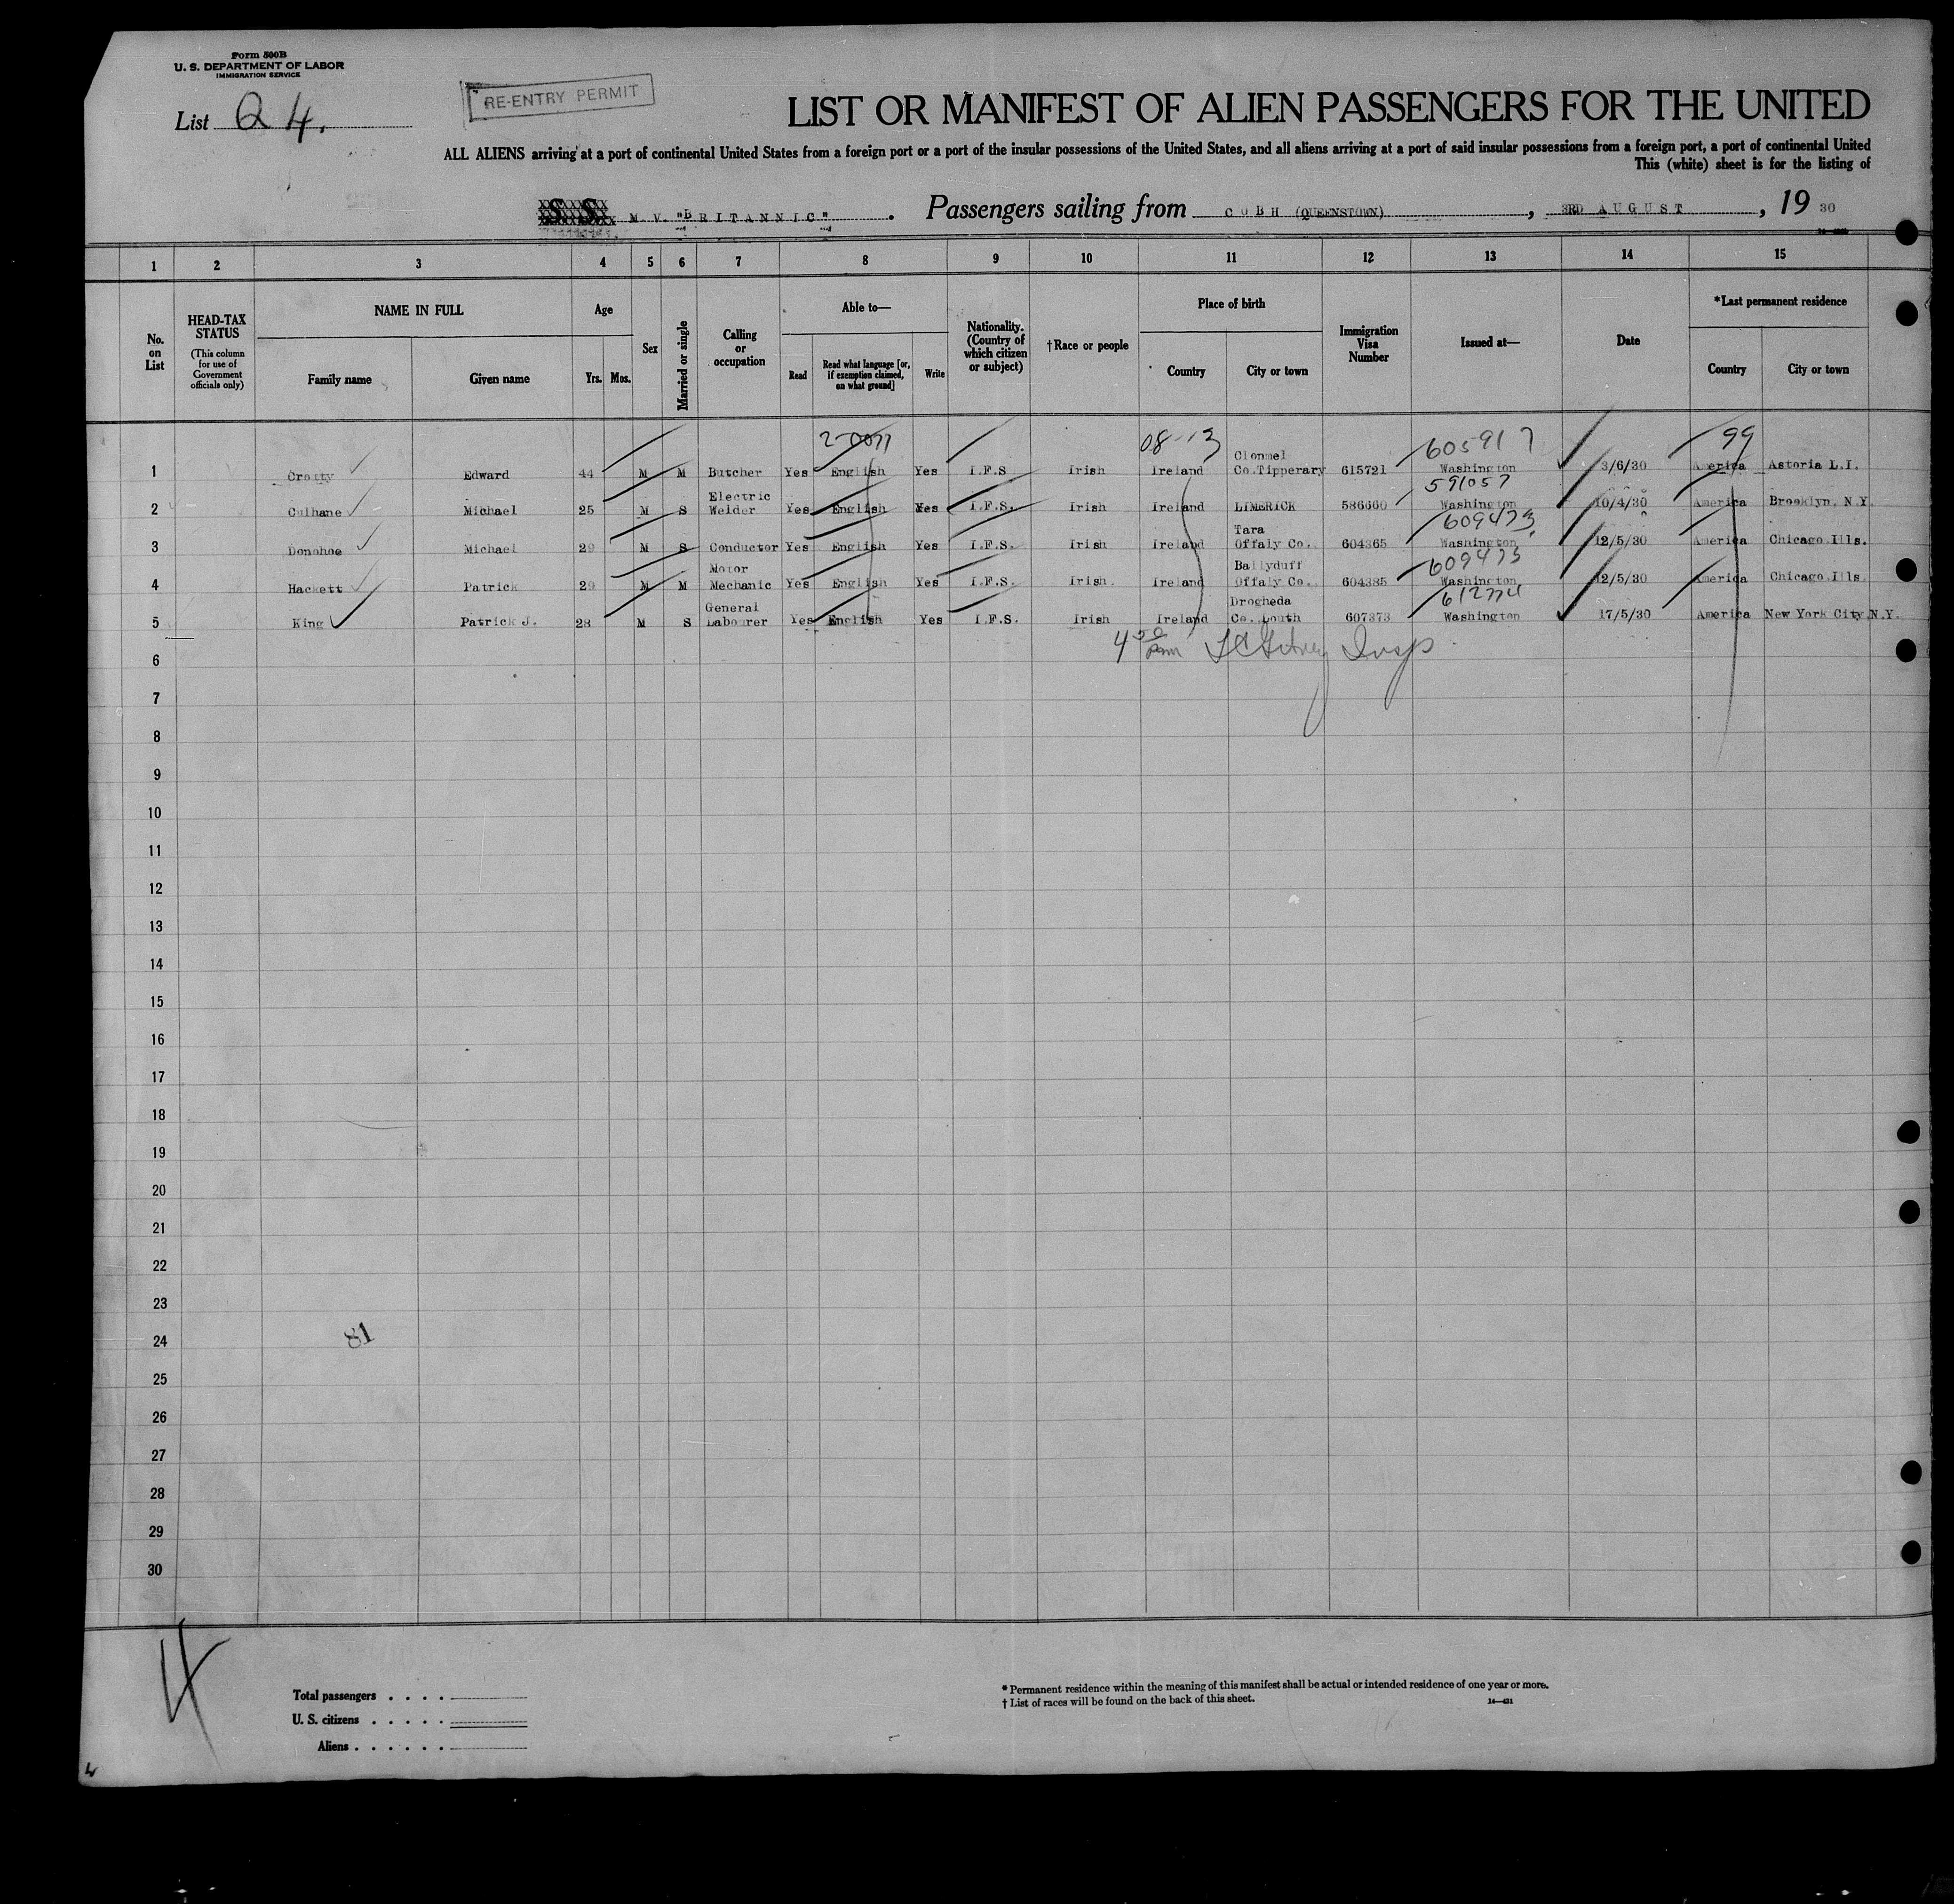 Form 500B
U. S. DEPARTMENT OF LABOR
IMMIGRATION SERVICE
List Q 4.
RE-ENTRY PERMIT
LIST OR MANIFEST OF ALIEN PASSENGERS FOR THE UNITED
ALL ALIENS arriving at a port of continental United States from a foreign port or a port of the insular possessions of the United States, and all aliens arriving at a port of said insular possessions from a foreign port, a port of continental United
This (white) sheet is for the listing of
S. S. M.V. "BRITANNIC". Passengers sailing from COBH (QUEENSTOWN), 3RD AUGUST, 19 30
1 2 3 4 5 6 7 8 9 10 11 12 13 14 15
No. on List
HEAD-TAX STATUS (This column for use of Government officials only)
NAME IN FULL
Family name Given name
Age
Yrs. Mos.
Sex
Married or single
Calling or occupation
Able to—
Read Read what language [or, if exemption claimed, on what ground] Write
Nationality. (Country of which citizen or subject)
†Race or people
Place of birth
Country City or town
Immigration Visa Number
Issued at—
Date
*Last permanent residence
Country City or town
08-13 605917 99
1 Crotty Edward 44 M M Butcher Yes English Yes I.F.S Irish Ireland Clonmel Co.Tipperary 615721 Washington 3/6/30 America Astoria L.I.
591057
2 Culhane Michael 25 M S Electric Welder Yes English Yes I.F.S. Irish Ireland LIMERICK 586660 Washington 10/4/30 America Brooklyn, N.Y.
609473
3 Donohoe Michael 29 M S Conductor Yes English Yes I.F.S. Irish Ireland Tara Offaly Co. 604365 Washington 12/5/30 America Chicago.Ills.
609475
4 Hackett Patrick 29 M M Motor Mechanic Yes English Yes I.F.S. Irish. Ireland Ballyduff Offaly Co. 604385 Washington 12/5/30 America Chicago.Ills.
5 King Patrick J. 28 M S General Labourer Yes English Yes I.F.S. Irish Ireland Drogheda Co. Louth 607373 Washington 17/5/30 America New York City N.Y.
6
7
8
9
10
11
12
13
14
15
16
17
18
19
20
21
22
23
24 81
25
26
27
28
29
30
4
Total passengers . . . .
U. S. citizens . . . . .
Aliens . . . . . .
* Permanent residence within the meaning of this manifest shall be actual or intended residence of one year or more.
† List of races will be found on the back of this sheet.